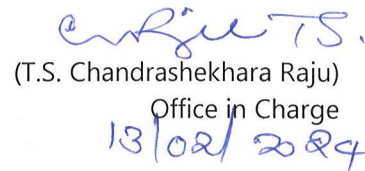 T.S.
(T.S. Chandrashekhara Raju)
Office in Charge
13/02/2024